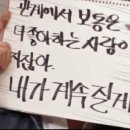 관계에서 보통은
더 좋아하는 사람이
져잖아.
내가 계속 질게